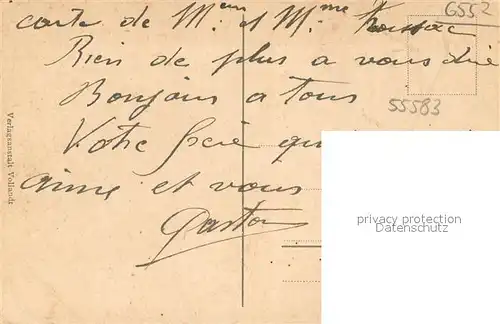 6552
carte de Mr et Mme
Rien de plus a vous dire
Bonjour a tous
55583
Votre frère qui
aime et vous
Gaston
Verlagsanstalt Vollandt
privacy protection
Datenschutz